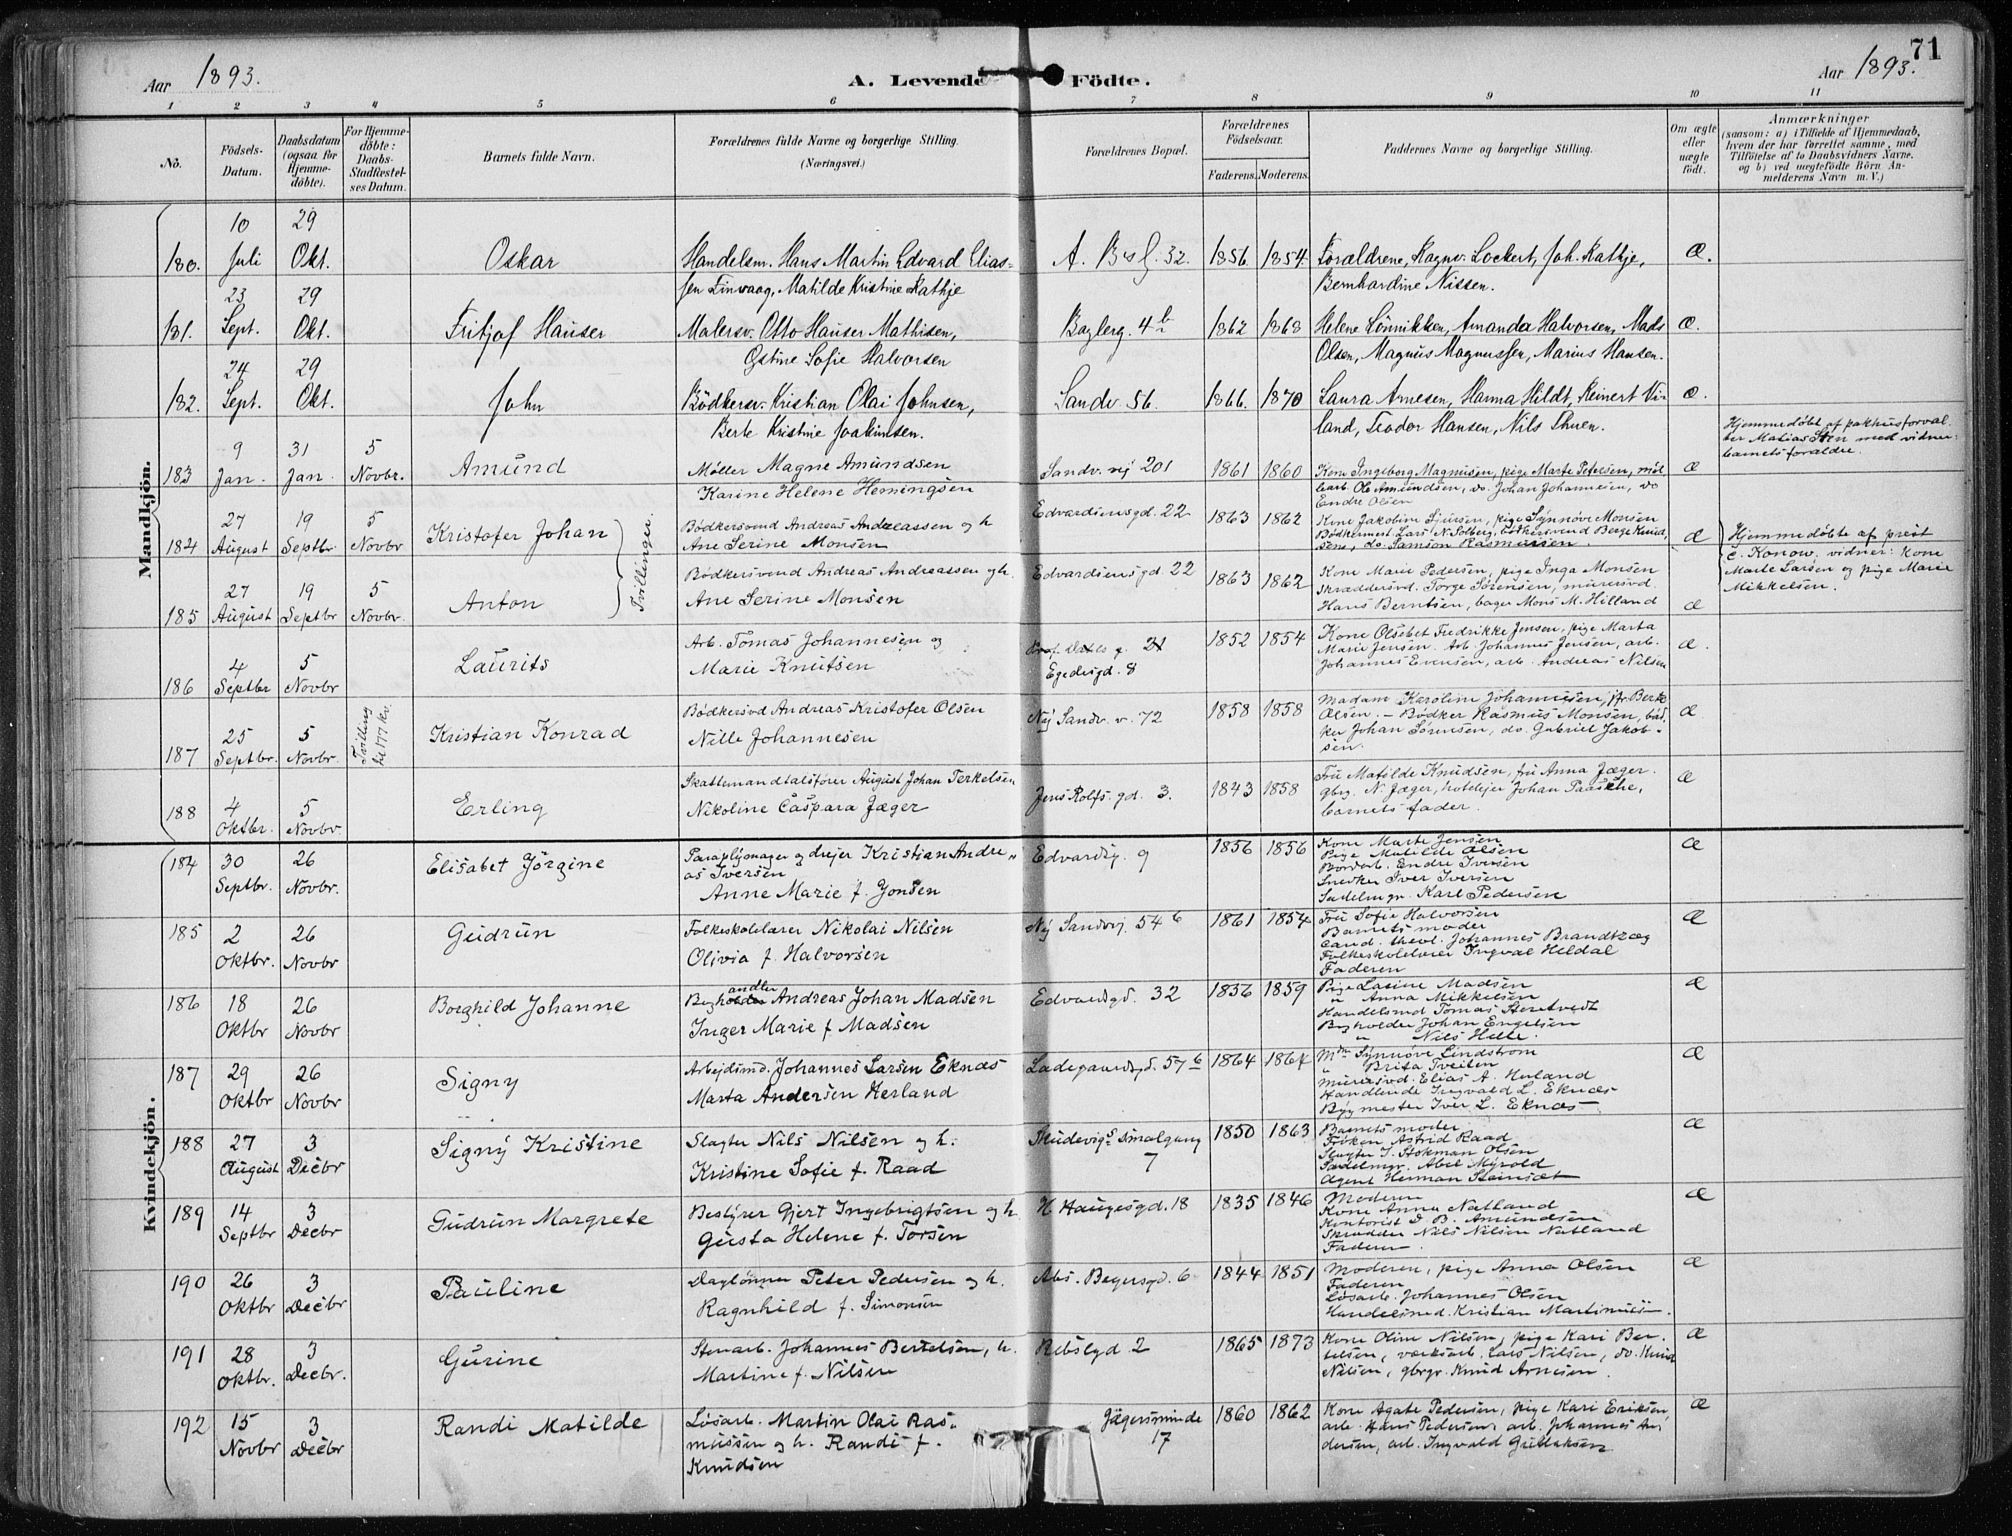 71
Aar 1893.
A. Levende Födte.
Aar 1893.
1 2 3 4 5 6 7 8 9 10 11
No.
Födsels-Datum.
Daabsdatum (ogsaa for Hjemmedöbte).
For Hjemmedöbte: Daabs-Stadfæstelses Datum.
Barnets fulde Navn.
Forældrenes fulde Navne og borgerlige Stilling. (Næringsvei.)
Forældrenes Bopæl.
Forældrenes Födselsaar.
Faderens. Moderens.
Faddernes Navne og borgerlige Stilling.
Om ægte eller uægte født.
Anmærkninger
(saasom: a) i Tilfælde af Hjemmedaab, hvem der har forrettet samme, med Tilföielse af to Daabsvidners Navne, og b) ved uægtefödte Börn Anmelderens Navn m. V.)
Mandkjön.
180. 10 Juli 29 Okt. Oskar Handelsm. Hans Martin Edvard Elias- A. Bsg. 32. 1856 1854 Forældrene, Ragnv. Lockert, Joh. Kathje, æ.
sen Finvaag, Matilde Kristine Kathje Bernhardine Nissen.
181. 23 Sept. 29 Okt. Fritjof Hauser Malersv. Otto Hauser Mathisen, 4b 1862 1868 Helene Lønnikken, Amanda Halvorsen, Mads æ.
Ostine Sofie Halvorsen Olsen, Magnus Magnussen, Marius Hansen.
182. 24 Sept. 29 Okt. John Bödkersv. Kristian Olai Johnsen, Sandv. 56. 1866. 1870 Laura Arnesen, Hanna Hildt, Reinert Vi- æ.
Berte Kristine Joakimsen. land, Teodor Hansen, Nils Thuen.
183 9 Jan. 31 Jan. 5 Novbr. Amund Møller Magne Amundsen Sandv. vej 201 1861 1860 Kone Ingeborg Magnusen, pige Marte Petersen, møl æ
Karine Helene Hemingsen learb. Ole Amundsen, do. Johan Johannesen, do
Endre Olsen
Hjemmedøbt af pakhusforval
ter Matias Sten med vidner:
barnets forældre.
184 27 August 19 Septbr 5 Novbr Kristofer Johan Bødkersvend Andreas Andreassen og h. Edvardsensgd. 22 1863 1862 Kone Jakobine Sjursen, pige Synnøve Monsen æ
Ane Serine Monsen Bødkermest. Lars N. Solberg, bødkersvend Berge Knud,
sens, do. Samson Rasmussen.
Tvillinger.
Hjemmedøbte af prest
C. Konow, vidner: Kone
Marte Larsen og pige Marie
Mikkelsen.
185 27 August 19 Septbr 5 Novbr. Anton Bødkersvend Andreas Andreassen og h. Edvardsensgd. 22 1863 1862 Kone Marie Pedersen, pige Inga Monsen
Ane Serine Monsen skræddersvd. Torge Sørensen, murersvd.
Hans Berntsen, bager Mons M. Hilland æ
186 4 Septbr 5 Novbr Laurits Arb. Tomas Johannesen og 21 1852 1854 Kone Olsebet Fredrikke Jensen, pige Marta
Marie Knutsen Egedesgd. 8 Marie Jensen. Arb. Johannes Jensen, arb. æ.
Johannes Evensen, arb. Andreas Nilsen
187 25 Septbr. 5 Novbr. Tvilling til 177 kv. Kristian Konrad Bødkersvd Andreas Kristofer Olsen Nij Sandv. v. 72 1858 1858 Madam Karoline Johannesen, fr. Berte æ
Nille Johannesen Olsen. - Bødker Rasmus Monsen, bød
ker Johan Sørensen, do. Gabriel Jakob-
sen.
188 4 Oktbr. 5 Novbr. Erling Skattemandtalsfører August Johan Terkelsen Jens Rolfs. gd. 3. 1843 1858 Fru Matilde Knudsen, fru Anna Jæger. æ
Nikoline Caspara Jæger gbrg. N. Jæger, hotelejer Johan Paasche,
barnets fader.
Kvindekjön.
184 30 Septbr. 26 Novbr. Elisabet Jørgine Paraplymager og drejer Kristian Andre„ Edvardsg. 9 1856 1856 Kone Marte Jensen æ
as Iversen Pige Matilde Olsen
Anne Marie f. Jonsen Bordarb. Endre Iversen
Snedker Iver Iversen
Sadelmgr. Karl Pedersen
185 2 Oktbr. 26 Novbr Gudrun Folkeskolelærer Nikolai Nilsen Nij Sandvij 54 b 1861 1854 Fru Sofie Halvorsen æ
Olivia f. Halvorsen Barnets moder
Cand. theol. Johannes Brandtzæg
Folkeskolelærer Ingval Heldal
Faderen
186 18 Oktbr 26 Novbr Borghild Johanne andler Andreas Johan Madsen Edvardsgd. 32 1856 1859 Pige Lasine Madsen æ
Inger Marie f. Madsen " Anna Mikkelsen
Handelsmd Tomas Stenetvedt
Johan Engelsen
" Nils Helle.
187 29 Oktbr 26 Novbr Signy Arbejdsmd. Johannes Larsen Eknæs Ladegaardsgd. 57 b 1864 1864 Mdm Synnøve Lindstrøm æ
Marta Andersen Herland " Brita Tveiten
Murersvd. Elias A. Herland
Handlende Ingvald L. Eknæs
Bygmester Iver L. Eknæs.
188 27 August 3 Decbr Signy Kristine Slagter Nils Nilsen og h. Skudevigs Smalgang 7 1850 1863 Barnets moder æ
Kristine Sofie f. Raad Frøken Astrid Raad
Slagter J. Stokman Olsen
Sadelmgr. Abel Myrold
Agent Herman Steinsæt
189 14 Septbr 3 Decbr Gudrun Margrete Bestyrer Gjert Ingebrigtsen og h. H. Haugesgd. 18 1835 1846 Moderen æ
Gusta Helene f. Torsen Kone Anna Natland
Kontorist D. B. Amundsen
Skrædder Nils Nilsen Natland
Faderen.
190 26 Oktbr 3 Decbr Pauline Dagløner Peter Pedersen og h. Abs. Beyersgd. 6 1844 1851 Moderen, pige Anna Olsen æ
Ragnhild f. Simonsen Faderen
Løsarb. Johannes Olsen
Handelsmd. Kristian Martinusen.
191 28 Oktbr. 3 Decbr. Gurine Stenarb. Johannes Bertelsen, h. Rebslgd 2 1865 1873 Kone Oline Nilsen, pige Kari Ber. æ
Martine f. Nilsen telsen, værksarb. Lars Nilsen, do. Knud
Nilsen, gbrgr. Knud Arnesen.
192 15 Novbr 3 Decbr Randi Matilde Løsarb. Martin Olai Ras- Jægersminde 17 1860 1862 Kone Agate Pedersen, pige Kari Eriksen æ
mussen og h. Randi f. arb. Hans Pedersen, arb. Johannes An,
Knudsen dersen, arb. Ingvald Gullaksen